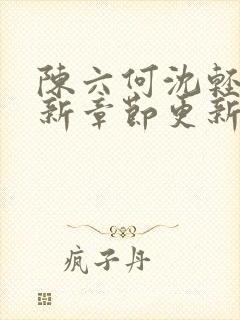 陳六何沈輕
新章節更新
疯子丹